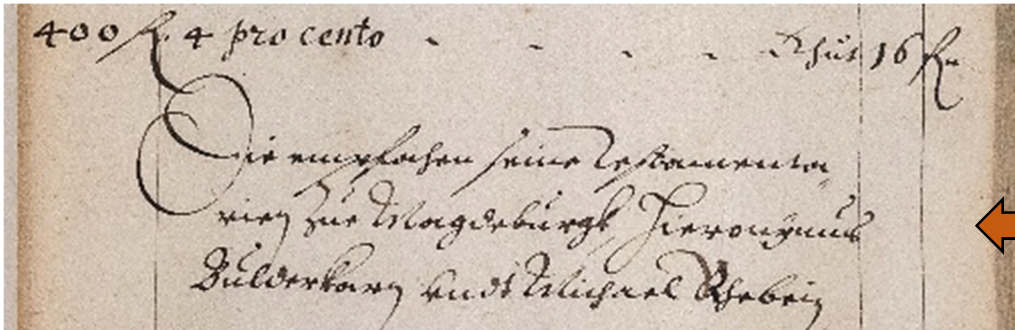 400 fl. 4 pro cento - - - - thut 16 fl.
Die empfahen seine Testamenta
rien zue Magdeburgk Hieronymus
Bulderkarn vndt Michael Rhebein